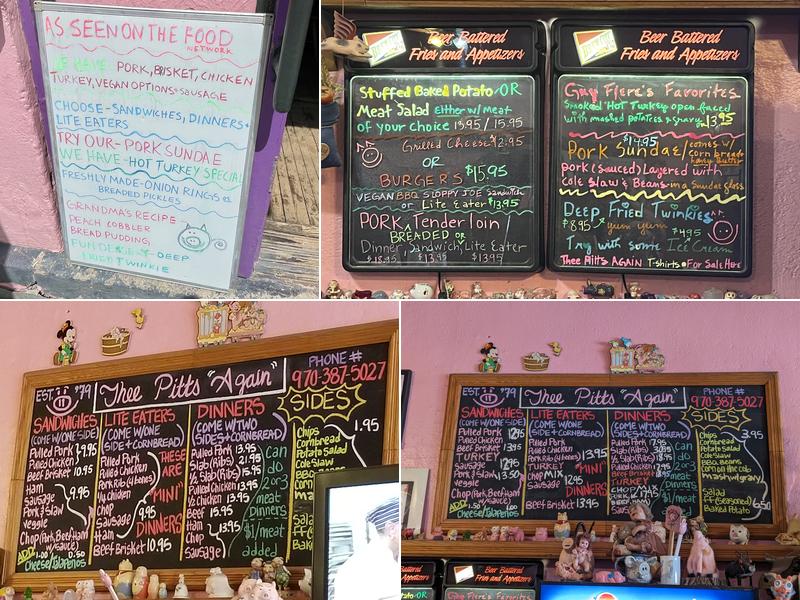 AS SEEN ON THE FOOD
NETWORK
WE HAVE PORK, BRISKET, CHICKEN
TURKEY, VEGAN OPTIONS + SAUSAGE
CHOOSE - SANDWICHES, DINNERS +
LITE EATERS
TRY OUR - PORK SUNDAE
WE HAVE - HOT TURKEY SPECIAL
FRESHLY MADE - ONION RINGS &
BREADED PICKLES
GRANDMA'S RECIPE
PEACH COBBLER
BREAD PUDDING
DEEP
FRIED TWINKIE
Beer Battered
Fries and Appetizers
Stuffed Baked Potato OR
Meat Salad Either w/ meat
of your choice 13.95 / 15.95
Grilled Cheese 12.95
OR
BURGERS $15.95
VEGAN BBQ SLOPPY JOE Sandwich
or Lite Eater $13.95
PORK Tenderloin
BREADED or
Dinner, Sandwich, Lite Eater
$18.95 / $13.95 $13.95
Beer Battered
Fries and Appetizers
Guy Flere's Favorites
Smoked Hot Turkey open faced
with mashed potatoes & gravy 13.95
$14.95
Pork Sundae / comes w/
corn bread
honey butter
pork (sauced) Layered with
Cole Slaw & Beans - in a Sundae glass
Deep Fried Twinkies
$8.95 yum yum $4.95
Try with some Ice Cream
Thee Pitts AGAIN T-shirts For Sale Here
EST. $79
Thee Pitts "Again"
PHONE #
970-387-5027
SANDWICHES
(COME W/ONE SIDE)
Pulled Pork 9.95
Pulled Chicken
Beef Brisket 10.95
Ham
Sausage
Pork & Slaw
Veggie
9.95
Chop (Pork, Beef, Ham
w/ sauce)
ADD 1.00 0.50
Cheese/Jalapenos
LITE EATERS
(COME W/ONE
SIDE + CORNBREAD)
Pulled Pork
Pulled Chicken
Pork Rib (4 bones)
1/4 Chicken
Chop
Sausage
Ham
9.95
Beef Brisket 10.95
THESE
ARE
"MINI"
DINNERS
DINNERS
(COME W/TWO
SIDES + CORNBREAD)
Pulled Pork 13.95
Slab (Ribs)
1/2 Slab (Ribs)
Pulled Chicken 13.95
1/2 Chicken 13.95
Beef 15.95
Ham
Chop
Sausage
13.95
can
do
2 or 3
meat
Dinners
$1/meat
added
SIDES
1.95
Chips
Cornbread
Potato Salad
Cole Slaw
BBQ
EST. $79
Thee Pitts "Again"
PHONE #
970-387-5027
SANDWICHES
(COME W/ONE SIDE)
Pulled Pork 12.95
Pulled Chicken
Beef Brisket 13.95
TURKEY
Sausage
Pork & Slaw 13.50
Veggie
Chop (Pork, Beef, Ham
w/ sauce)
ADD 1.00
Cheese/Jalapenos
LITE EATERS
(COME W/ONE
SIDE + CORNBREAD)
Pulled Pork
Pulled Chicken
Pork Rib (4 bones) 13.95
TURKEY
Chop
Sausage
THESE
ARE
"MINI"
DINNERS
DINNERS
(COME W/TWO
SIDES + CORNBREAD)
Pulled Pork
Slab (Ribs)
1/2 Slab (Ribs)
Pulled Chicken
Beef Brisket
TURKEY
Sausage
can
do
2 or 3
meat
Dinners
$1/meat
SIDES
3.95
Chips
Cornbread
Potato Salad
Cole Slaw
BBQ Beans
corn on the cob
mashed w/gravy
Salad
FF (Seasoned)
Baked Potato
6.50
Beer Battered
Fries and Appetizers
Beer Battered
Fries and Appetizers
Guy Flere's Favorites